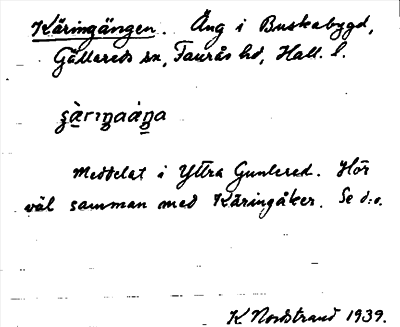 Käringängen. Äng i Buskabygd,
Gällareds sn, Faurås hd, Hall. l.
Meddelat i Yttra Gunnered. Hör
väl samman med Käringåker. Se d:o.
K Nordstrand 1939.